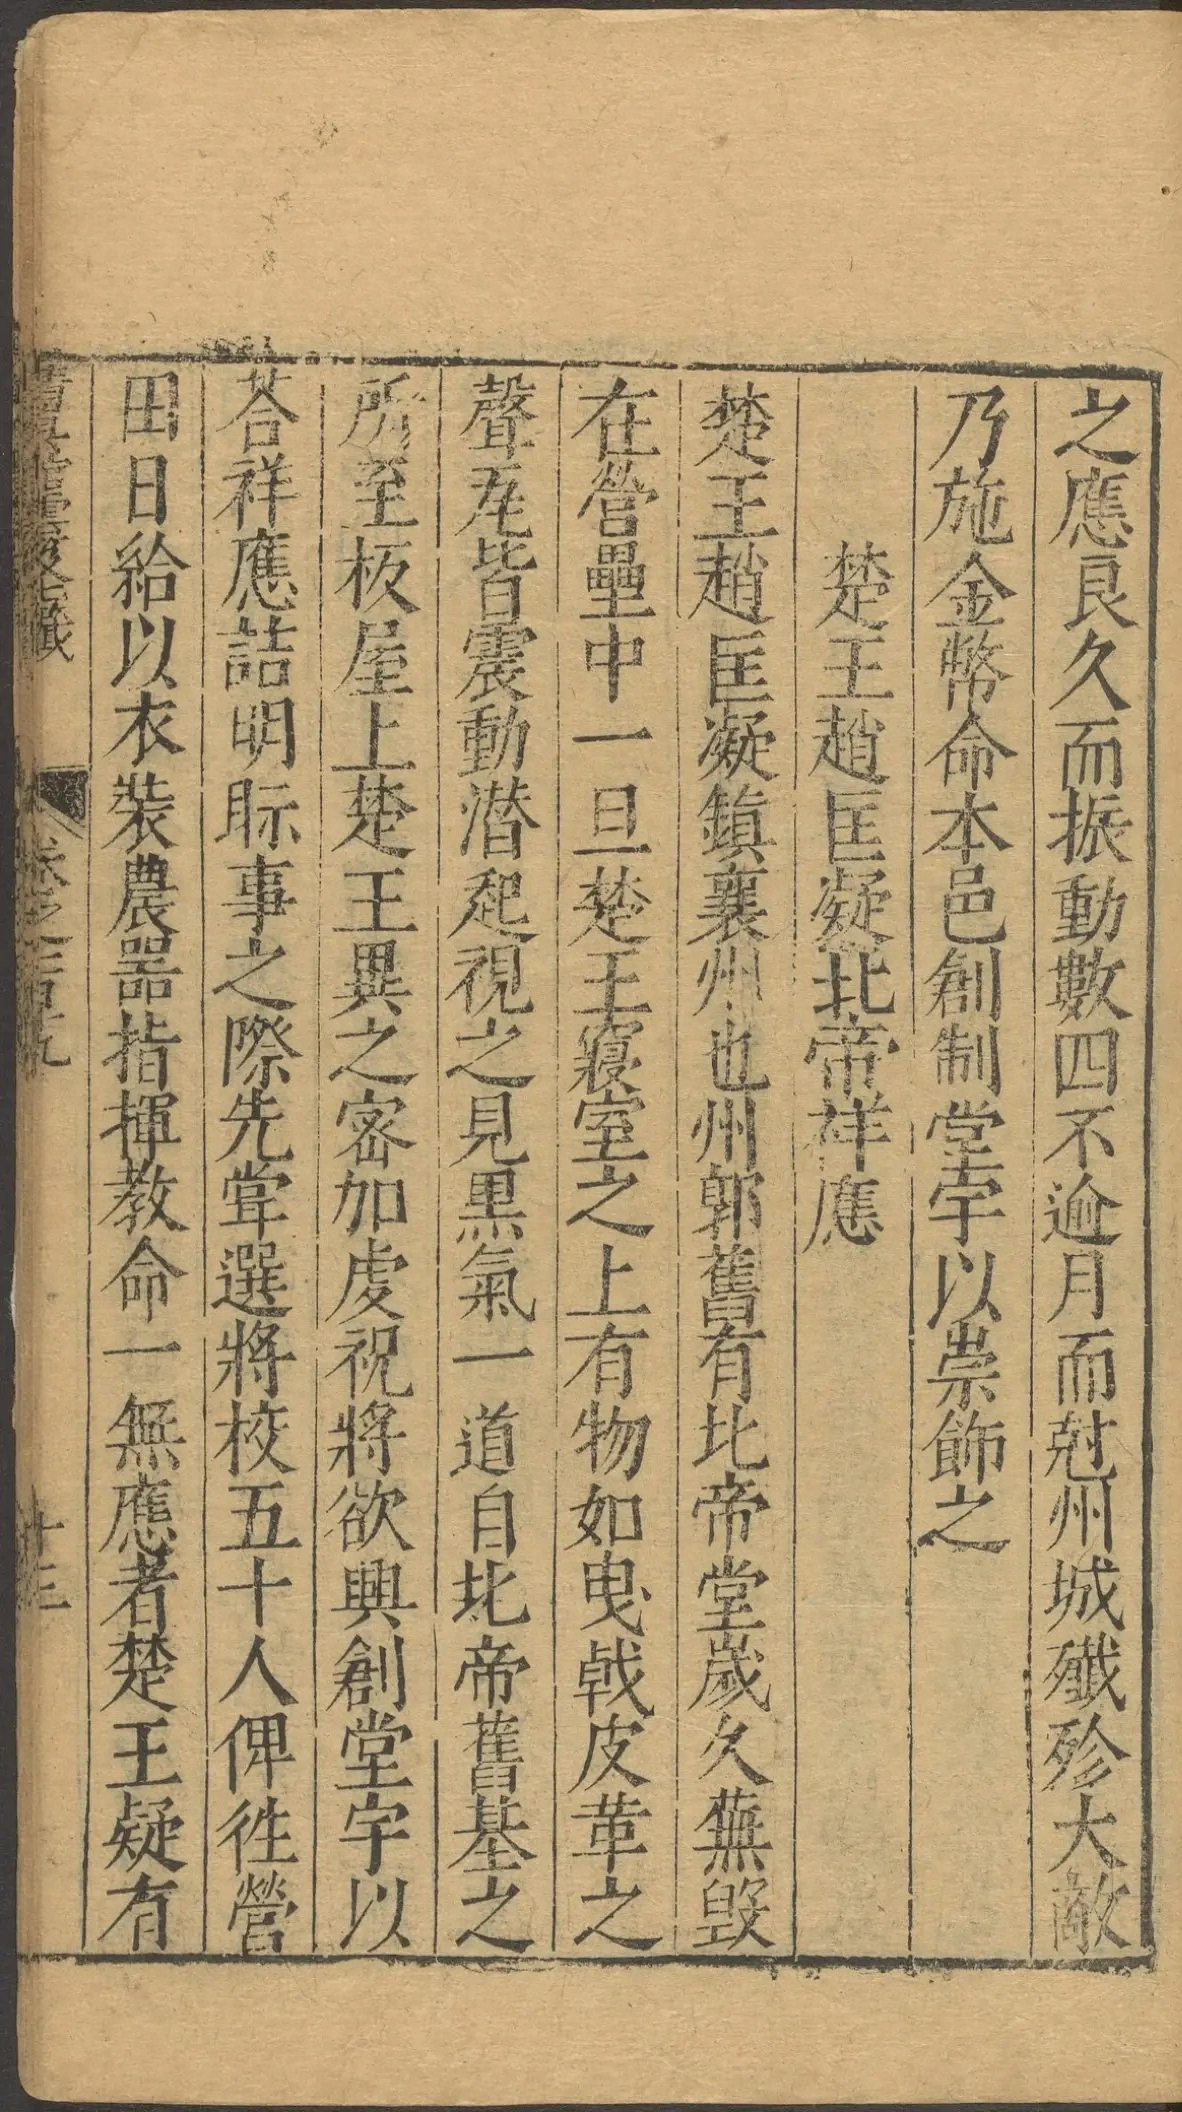 之應良久而振動數四不逾月而尅州城殲殄大敵
乃施金幣命本邑創制堂宇以崇飾之
楚王趙匡凝北帝祥應
楚王趙匡凝鎮襄州也州郭舊有北帝堂歲久蕪毀
在營壘中一旦楚王寢室之上有物如曳戟皮革之
聲瓦皆震動潜起視之見黒氣一道自北帝舊基之
所至板屋上楚王異之密加虔祝將欲興創堂宇以
荅祥應詰明眎事之際先甞選將校五十人俾徃營
田日給以衣裝農噐指揮教命一無應者楚王疑有